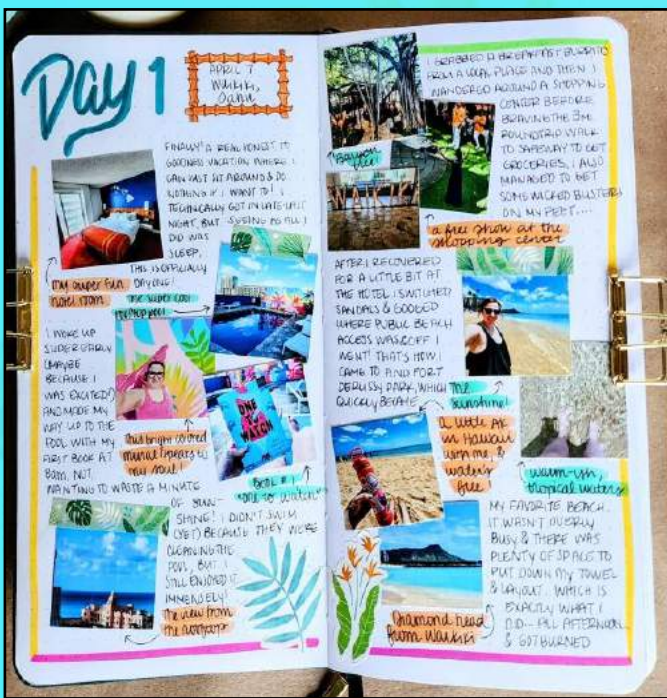 Day 1
APRIL 7
Waikiki,
Oahu
FINALLY! A REAL HONEST TO
GOODNESS VACATION WHERE I
CAN JUST SIT AROUND & DO
NOTHING IF I WANT TO! I
TECHNICALLY GOT IN LATE LAST
NIGHT, BUT SEEING AS ALL I
DID WAS
SLEEP,
THIS IS OFFICIALLY
DAY ONE!
my super fun
hotel room
the super cool
rooftop pool
I WOKE UP
SUPER EARLY
(MAYBE
BECAUSE I
WAS EXCITED?)
AND MADE MY
WAY UP TO THE
POOL WITH MY
FIRST BOOK AT
8am, NOT
WANTING TO WASTE A MINUTE
OF SUN-
SHINE! I DIDN'T SWIM
(YET) BECAUSE THEY WERE
CLEANING THE
POOL, BUT I
STILL ENJOYED IT
IMMENSELY!
this bright colored
mural speaks to
my soul!
ONE TO WATCH
Book #1
"One to Watch"
the view from
the rooftop
I GRABBED A BREAKFAST BURRITO
FROM A LOCAL PLACE AND THEN I
WANDERED AROUND A SHOPPING
CENTER BEFORE
BRAVING THE 3mi
ROUNDTRIP WALK
TO SAFEWAY TO GET
GROCERIES, I ALSO
MANAGED TO GET
SOME WICKED BLISTERS
ON MY FEET....
Banyan
tree!
WAIKIKI
a free show at the
shopping center
AFTER I RECOVERED
FOR A LITTLE BIT AT
THE HOTEL, I SWITCHED
SANDALS & GOOGED
WHERE PUBLIC BEACH
ACCESS WAS & OFF I
WENT! THAT'S HOW I
CAME TO FIND FORT
DERUSSY PARK, WHICH
QUICKLY BECAME
the
sunshine!
a little AK
in Hawaii
with me, &
waders
free!
warm-ish,
tropical waters
MY FAVORITE BEACH.
IT WASN'T OVERLY
BUSY & THERE WAS
PLENTY OF SPACE TO
PUT DOWN MY TOWEL
& LAYOUT. WHICH IS
EXACTLY WHAT I
DID... ALL AFTERNOON
& GOT BURNED
Diamond head
from Waikiki